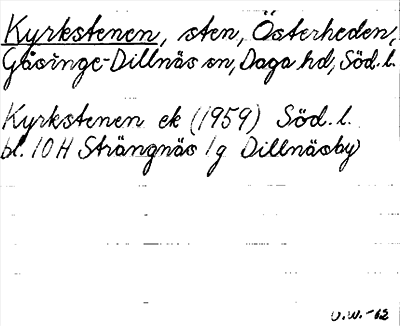 Kyrkstenen, sten, Österheden,
Gåsinge-Dillnäs sn, Daga hd, Söd. l.
Kyrkstenen ek (1959) Söd. l.
bl. 10 H Strängnäs 1g Dillnäsby
U.W.-62